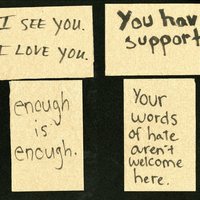 I SEE YOU.
I LOVE YOU.
You hav
support
enough
is
enough.
Your
words
of hate
aren't
welcome
here.